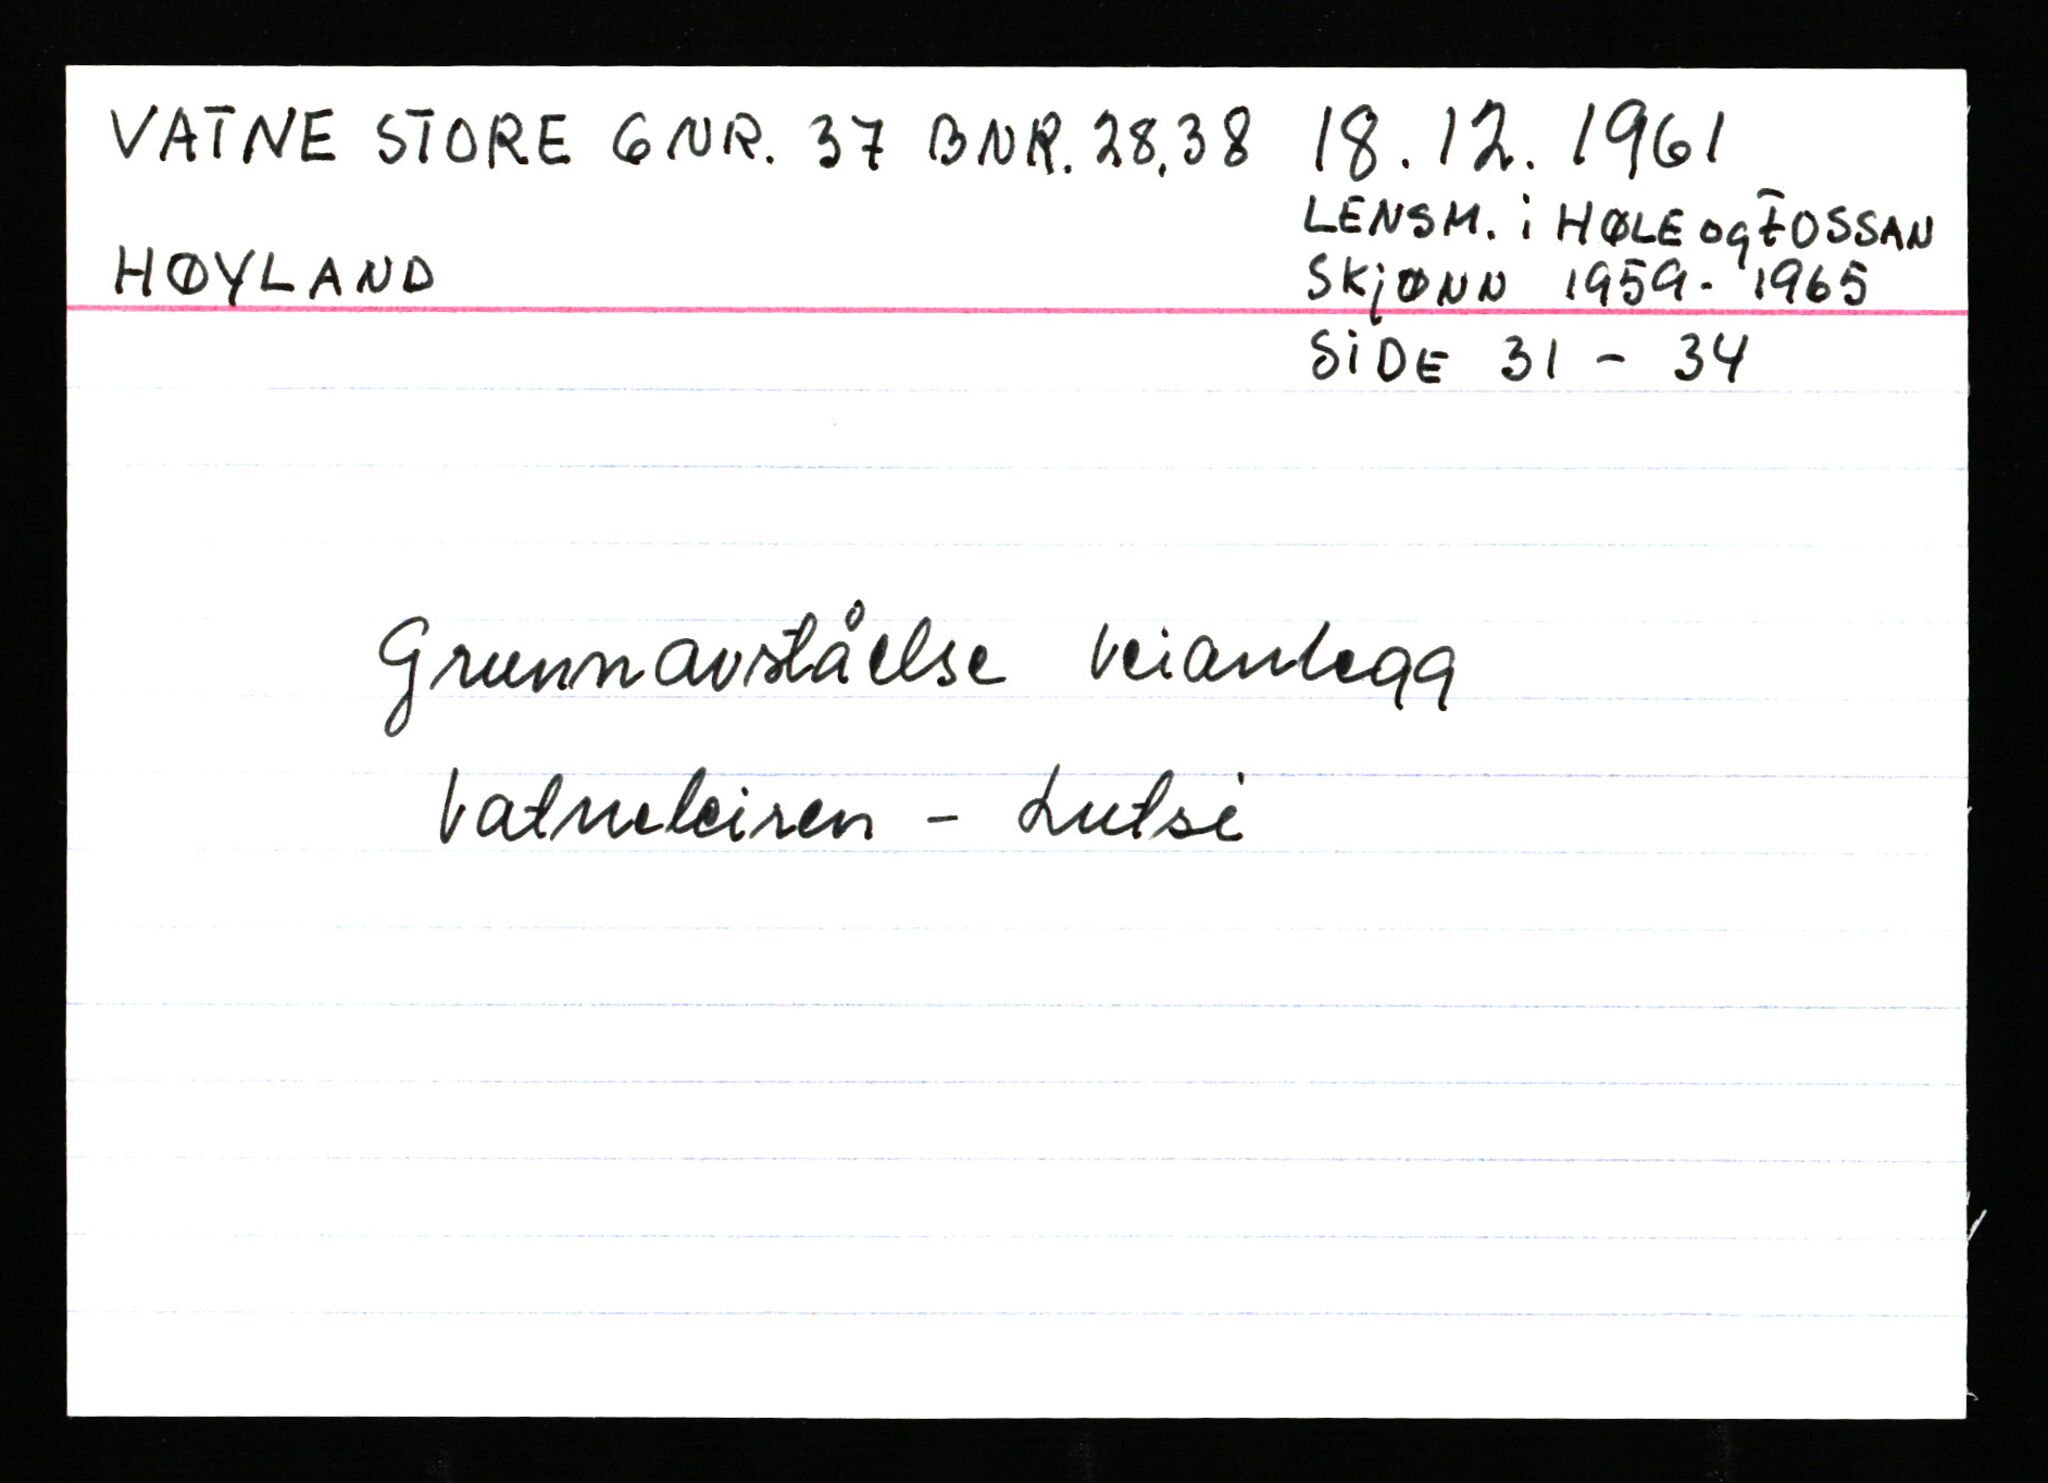 VATNE STORE GNR. 37 BNR. 28,38 18.12.1961
LENSM. i HØLE og FOSSAN
HØYLAND
SKJØNN 1959-1965
SIDE 31 - 34
Grunnavståelse veianlegg
Vatneleiren - Lutsi